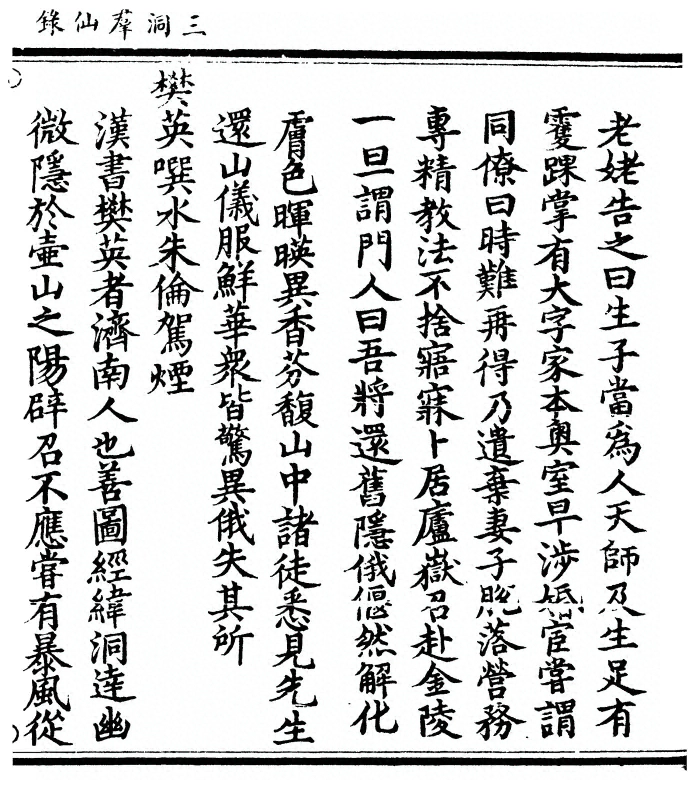 三洞羣仙錄
老姥告之曰生子當爲人天師及生足有
䨥踝掌有大字家本奥室早涉婚宦嘗謂
同僚曰時難再得乃遺棄妻子脫落營務
專精教法不捨寤寐卜居廬嶽召赴金陵
一旦謂門人曰吾將還舊隱俄偃然解化
膚色暉暎異香芬馥山中諸徒悉見先生
還山儀服鮮華衆皆驚異俄失其所
樊英噀水朱倫駕煙
漢書樊英者濟南人也善圖經緯洞達幽
微隱於壷山之陽辟召不應嘗有暴風從